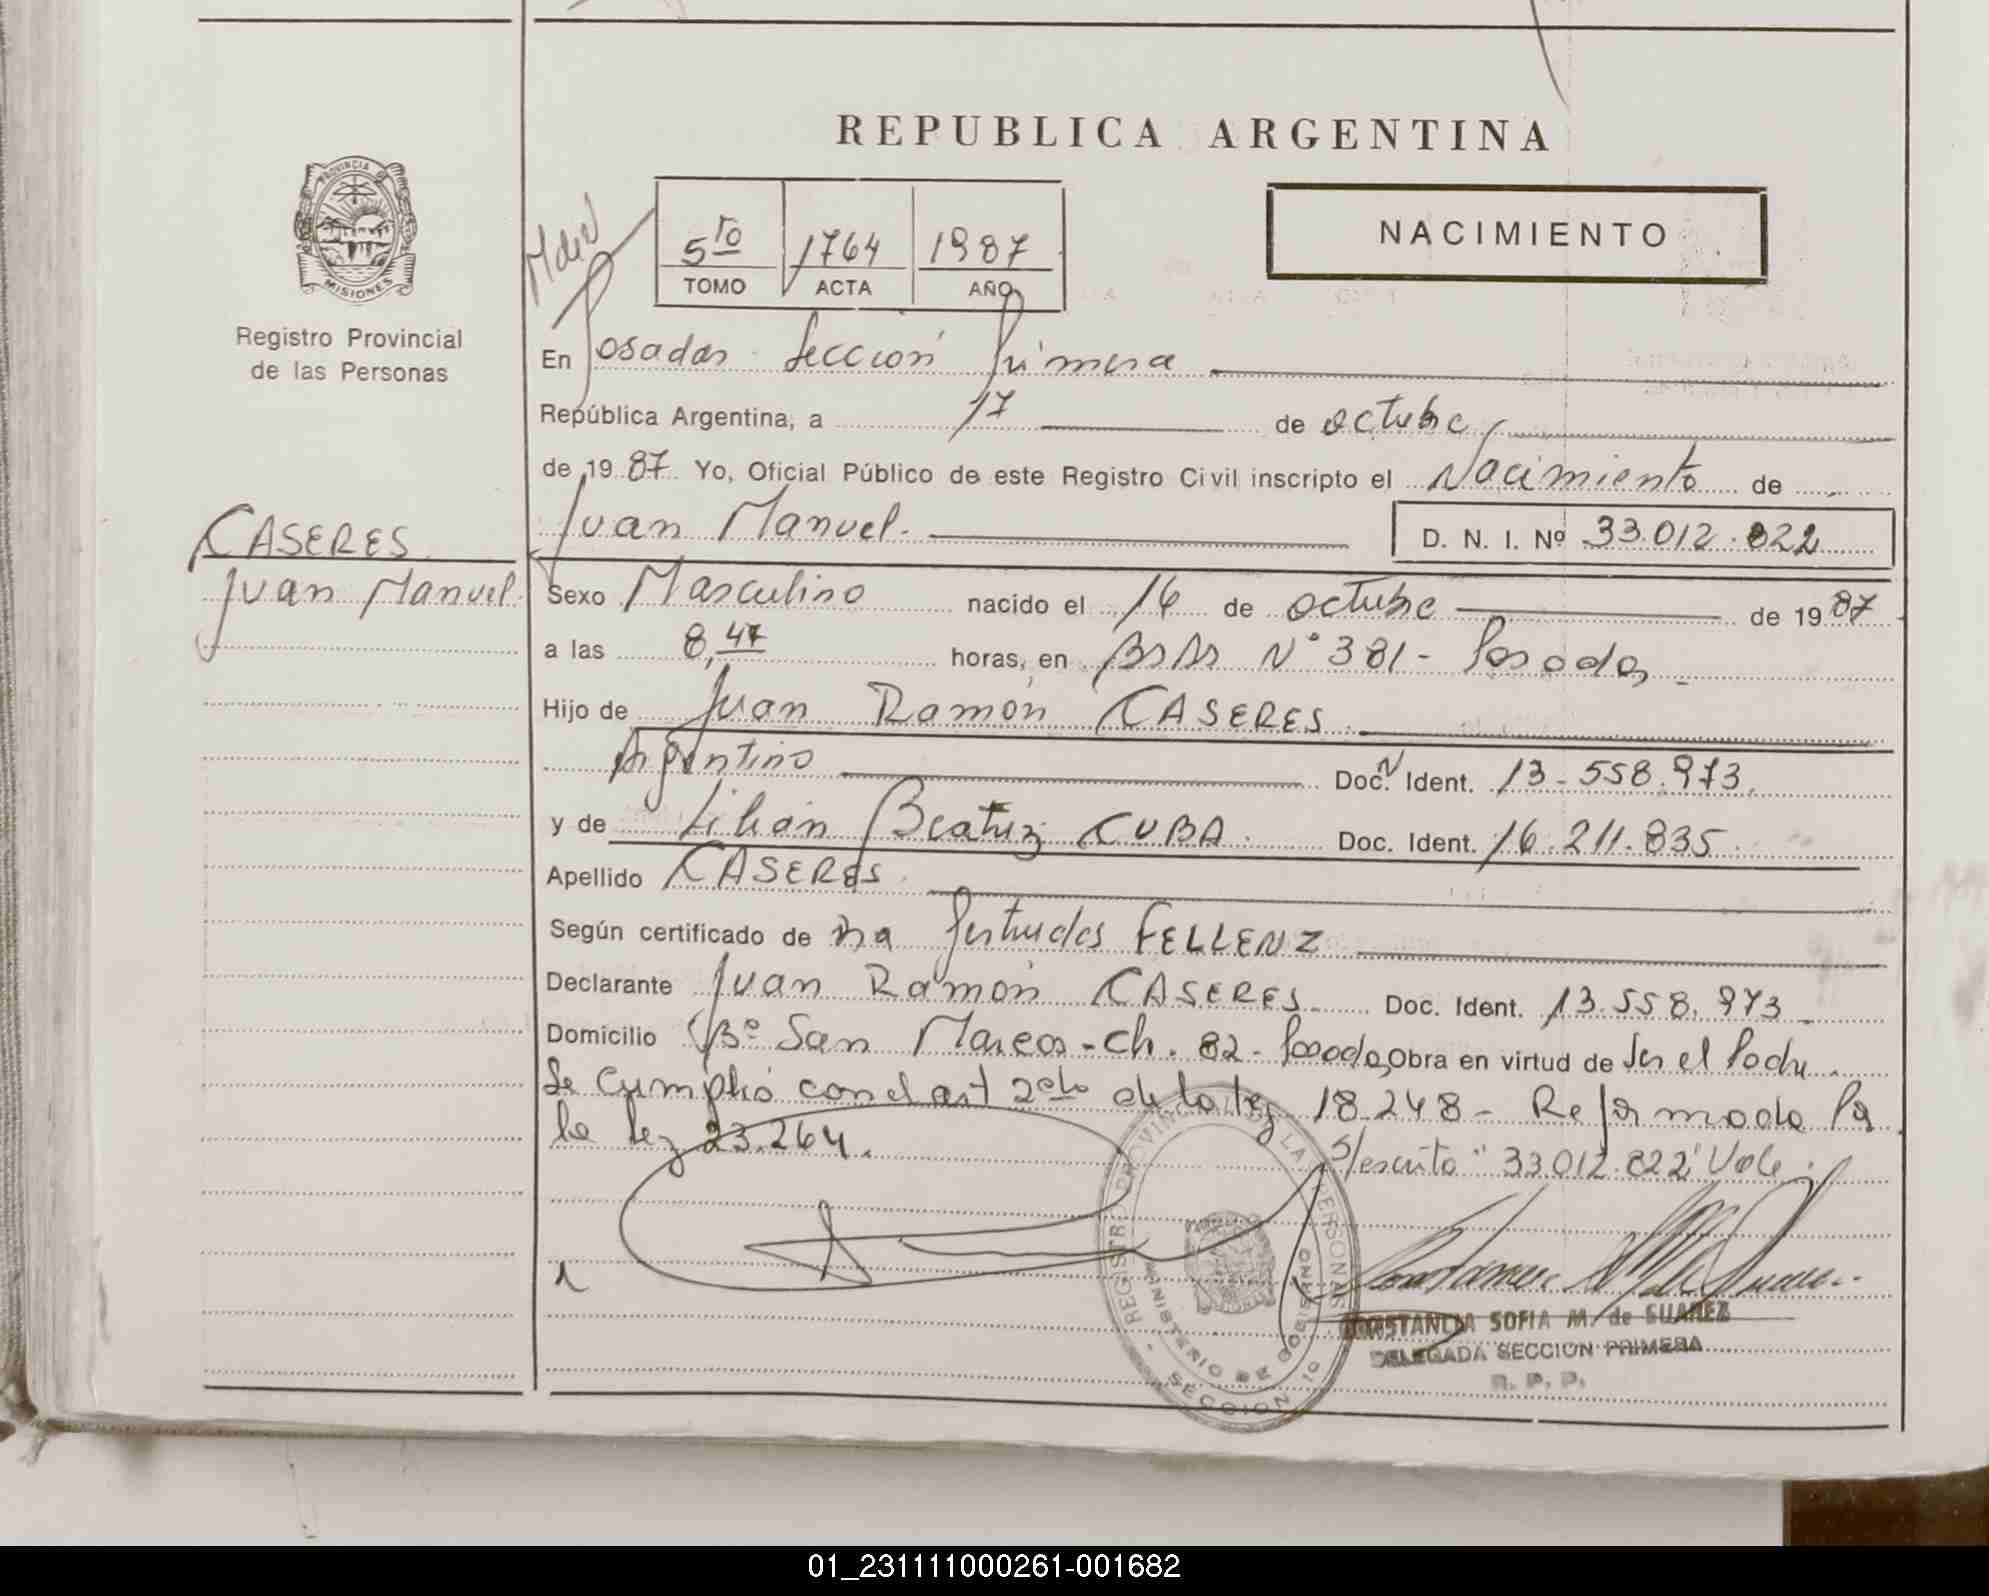 REPUBLICA ARGENTINA
NACIMIENTO
PROVINCIA DE
MISIONES
Registro Provincial
de las Personas
5to 1764 1987
TOMO ACTA AÑO
En Posadas Sección Primera
República Argentina, a 17 de octubre
de 1987 Yo, Oficial Público de este Registro Civil inscripto el Nacimiento de
Juan Manuel. D. N. I. Nº 33.012.822
CASERES
Juan Manuel
Sexo Masculino nacido el 16 de octubre de 1987
a las 8,47 horas, en BsAs N° 381 - Posadas
Hijo de Juan Ramón CASERES
Argentino Doc. Ident. 13.558.973
y de Lilian Beatriz CUBA. Doc. Ident. 16.211.835
Apellido CASERES
Según certificado de Gertrudes FELLENZ
Declarante Juan Ramón CASERES Doc. Ident. 13.558.973
Domicilio Bº San Marcos - Ch. 82 - Posadas, Obra en virtud de Ser el Padre.
Se Cumplió con el art 2do de la ley 18.248 - Reformada Por
la ley 23.264.
S/escrito "33.012.822" Vale.
REGISTRO PROVINCIAL DE LAS PERSONAS
MINISTERIO DE GOBIERNO
SECCION 1º
CONSTANCIA SOFIA M. de SUAREZ
DELEGADA SECCION PRIMERA
R. P. P.
01_231111000261-001682